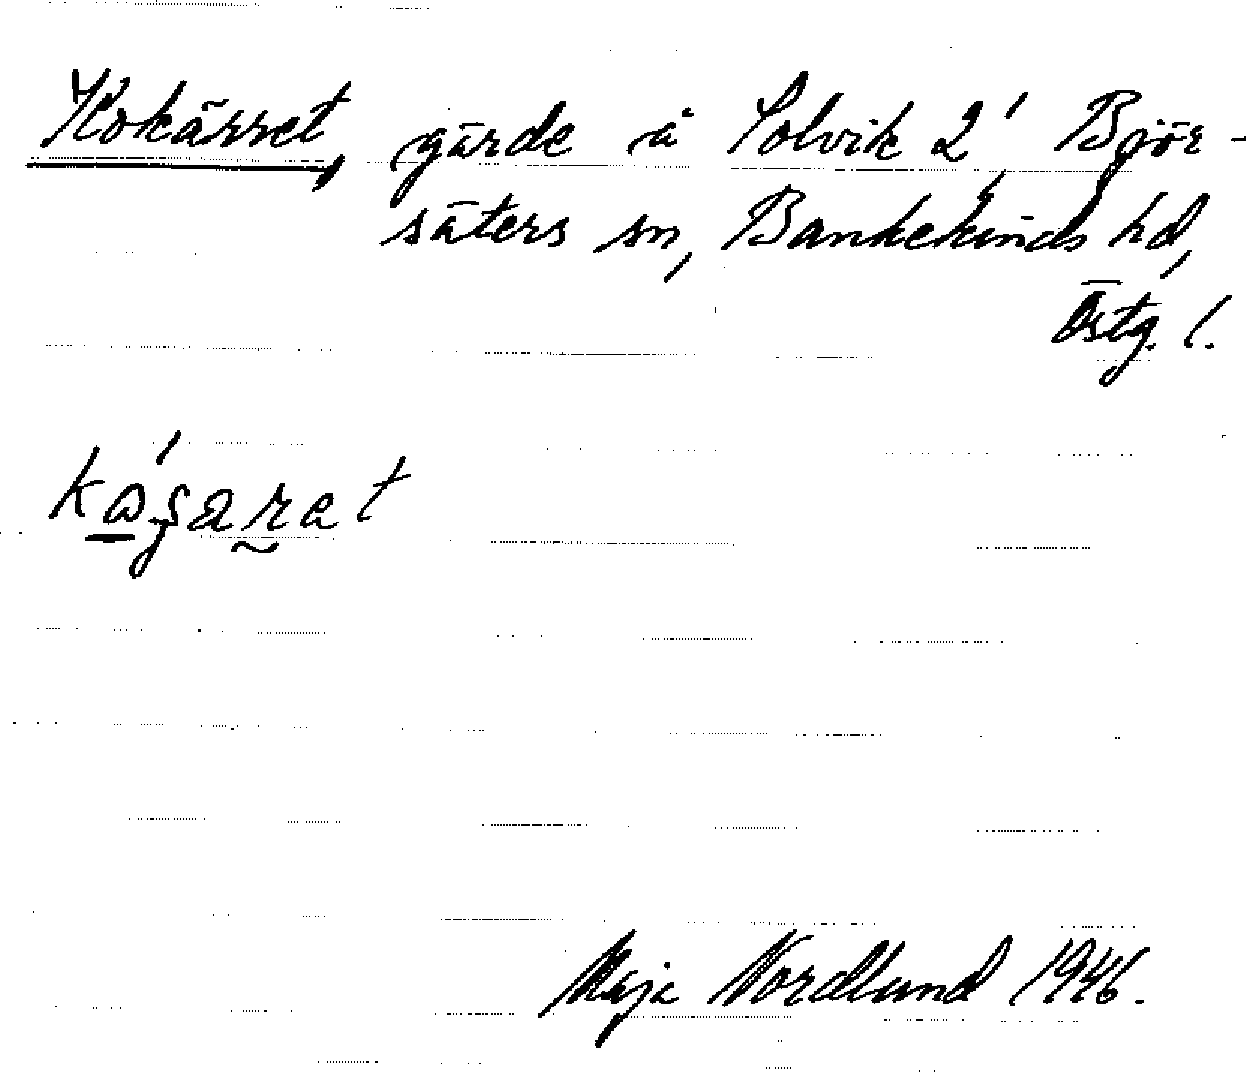 Kokärret, gärde å Solvik 2¹ Björ-
säters sn, Bankekinds hd,
Östg. l.
Maja Nordlund 1946.